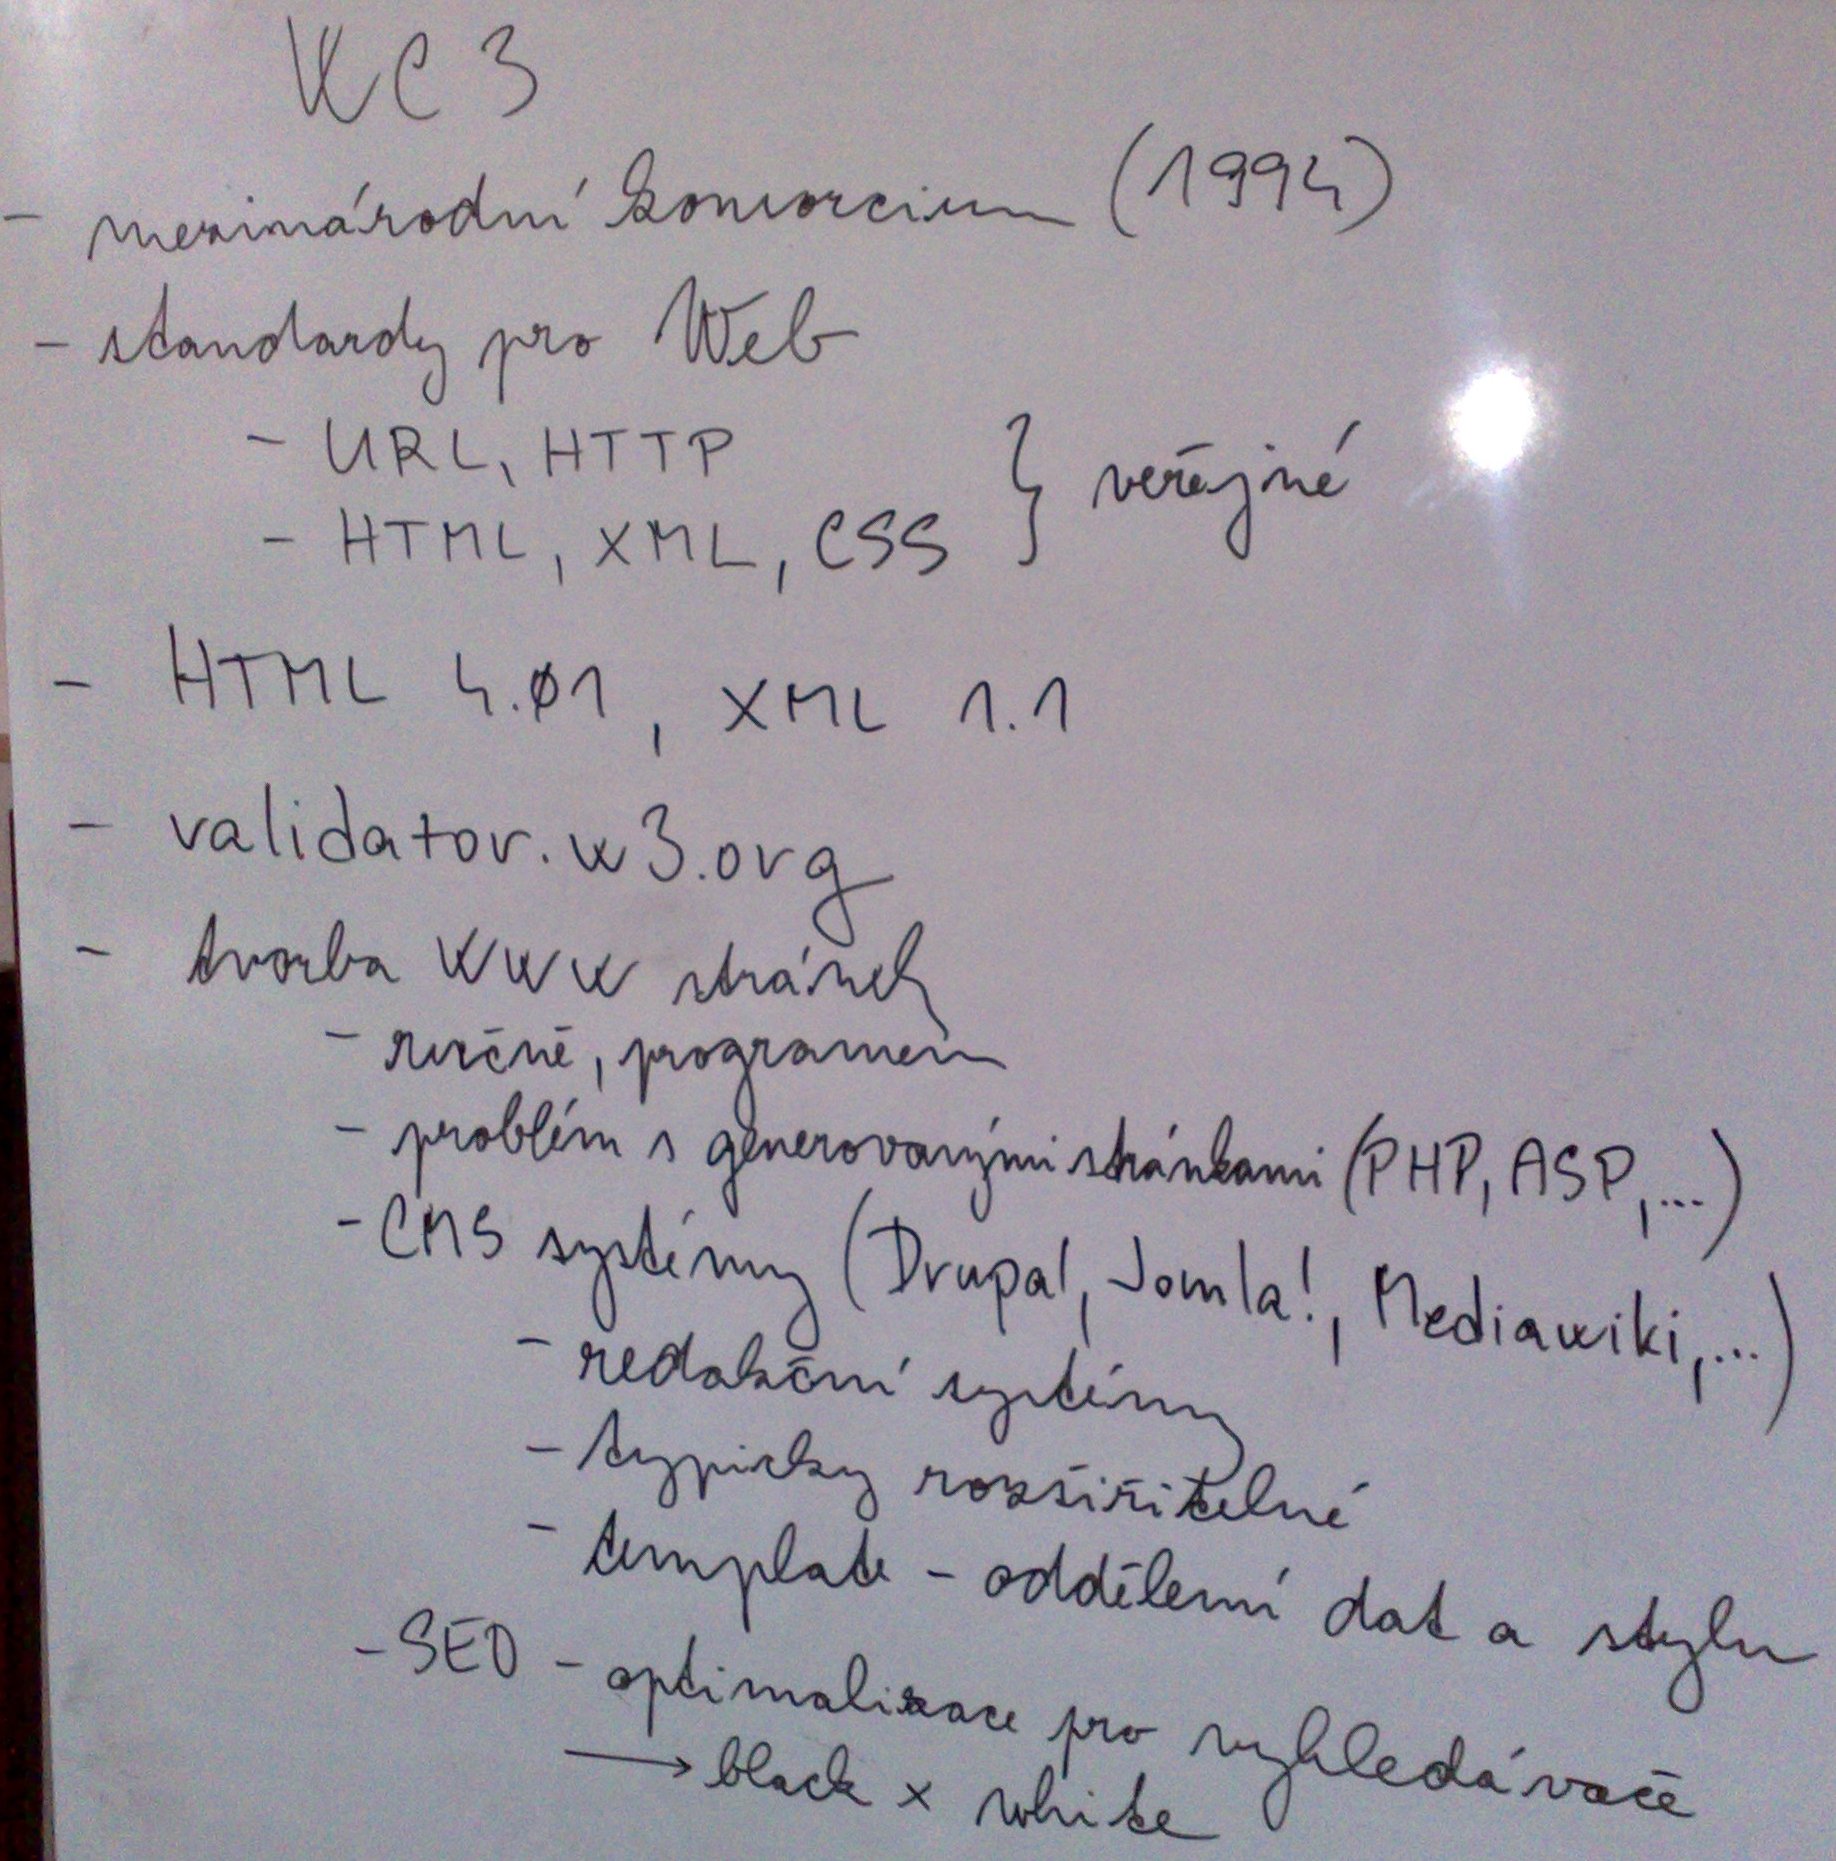 WC3
- mezinárodní konsorcium (1994)
- standardy pro Web
- URL, HTTP
- HTML, XML, CSS } veřejné
- HTML 4.01, XML 1.1
- validator.w3.org
- tvorba WWW stránek
- ručně, programem
- problém s generovanými stránkami (PHP, ASP, ...)
- CMS systémy (Drupal, Jomla!, Mediawiki, ...)
- redakční systémy
- typicky rozšiřitelné
- template - oddělení dat a stylu
- SEO - optimalizace pro vyhledávače
→ black x white